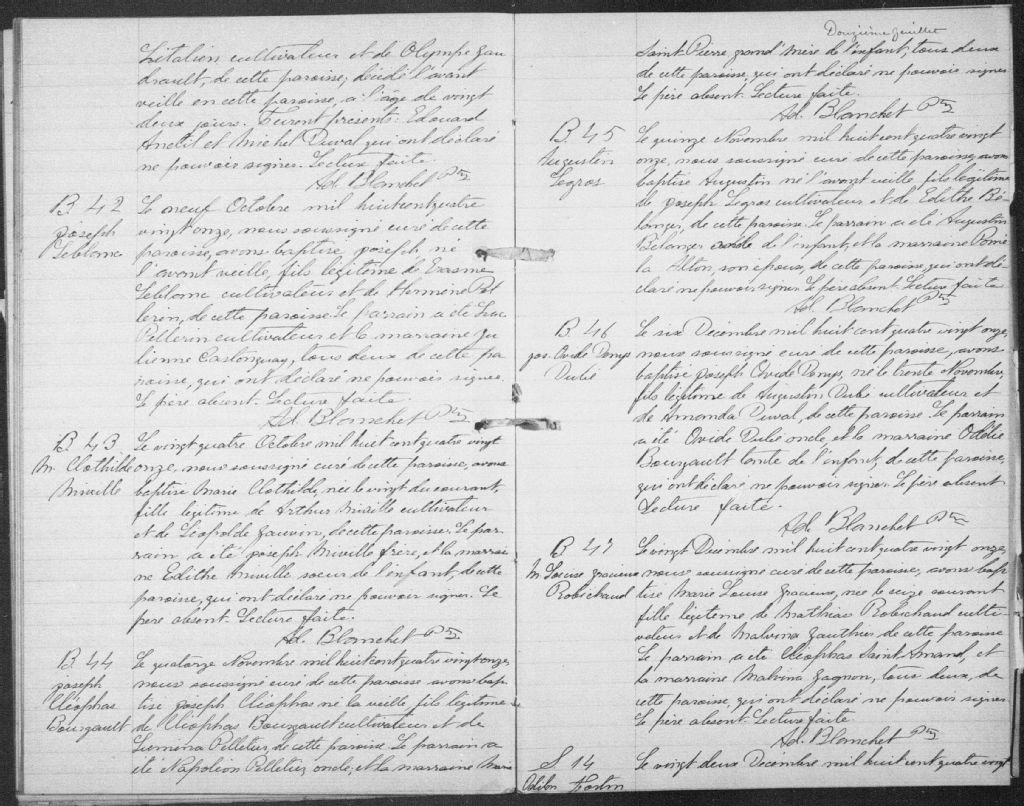 Litalien cultivateur et de Olympe Gau
drault, de cette paroisse, décédé l'avant
veille en cette paroisse, a l'âge de vingt
deux jours. Furent presents: Edouard
Anctil et Michel Duval qui ont déclaré
ne pouvoir signer. Lecture faite.
Ad. Blanchet Ptre
B 42
Joseph
Leblanc
Le neuf Octobre mil huit cent quatre
vingt onze, nous soussigné curé de cette
paroisse, avons baptisé Joseph, né
l'avant veille, fils légitime de Erasme
Leblanc cultivateur et de Hermine Pel
lerin, de cette paroisse. Le parrain a été Luc
Pellerin cultivateur et la marraine Ju
lienne Castonguay, tous deux de cette pa
roisse, qui ont déclaré ne pouvoir signer.
Le père absent. Lecture faite.
Ad. Blanchet Ptre
B 43
M. Clothilde
Miville
Le vingt quatre Octobre mil huit cent quatre vingt
onze, nous soussigné curé de cette paroisse, avons
baptisé Marie Clothilde, née le vingt du courant,
fille légitime de Arthur Miville cultivateur
et de Léopolde Gauvin, de cette paroisse. Le par
rain a été Joseph Miville frère, et la marrai
ne Edithe Miville soeur de l'enfant, de cette
paroisse, qui ont déclaré ne pouvoir signer. Le
père absent. Lecture faite.
Ad. Blanchet Ptre
B 44
Joseph
Cléophas
Bourgault
Le quatorze Novembre mil huit cent quatre vingt onze,
nous soussigné curé de cette paroisse avons bap
tisé Joseph Cléophas né la veille fils légitime
de Cléophas Bourgault cultivateur et de
Lumina Pelletier, de cette paroisse. Le parrain a
été Napoléon Pelletier, oncle, et la marraine Marie
Douzième feuillet
Saint Pierre grand'mère de l'enfant, tous deux
de cette paroisse, qui ont déclaré ne pouvoir signer
Le père absent. Lecture faite.
Ad. Blanchet Ptre
B 45
Augustin
Legros
Le quinze Novembre mil huit cent quatre vingt
onze, nous soussigné curé de cette paroisse, avons
baptisé Augustin né l'avant veille fils légitime
de Joseph Legros cultivateur et de Edithe Bé
langer, de cette paroisse. Le parrain a été Augustin
Bélanger oncle de l'enfant, et la marraine
la son épouse, de cette paroisse, qui ont dé
claré ne pouvoir signer. Le père absent. Lecture faite
Ad. Blanchet Ptre
B 46
Jos. Ovide Denys
Dubé
Le six Décembre mil huit cent quatre vingt onze,
nous soussigné curé de cette paroisse, avons
baptisé Joseph Ovide Denys, né le trente Novembre,
fils légitime de Augustin Dubé cultivateur et
de Amanda Duval, de cette paroisse. Le parrain
a été Ovide Dubé oncle, et la marraine Odélie
Bourgault tante de l'enfant, de cette paroisse,
qui ont déclaré ne pouvoir signer. Le père absent
Lecture faite.
Ad. Blanchet Ptre
B 47
M. Louise Gracieuse
Robichaud
Le vingt Décembre mil huit cent quatre vingt onze,
nous soussigné curé de cette paroisse, avons bap
tisé Marie Louise Gracieuse, née le seize courant
fille légitime de Matthias Robichaud culti
vateur et de Malvina Gauthier de cette paroisse
Le parrain a été Cléophas Saint Amand, et
la marraine Malvina Gagnon, tous deux, de
cette paroisse, qui ont déclaré ne pouvoir signer
Le père absent. Lecture faite
Ad. Blanchet Ptre
S 14
Odilon Fortin
Le vingt deux Décembre mil huit cent quatre vingt